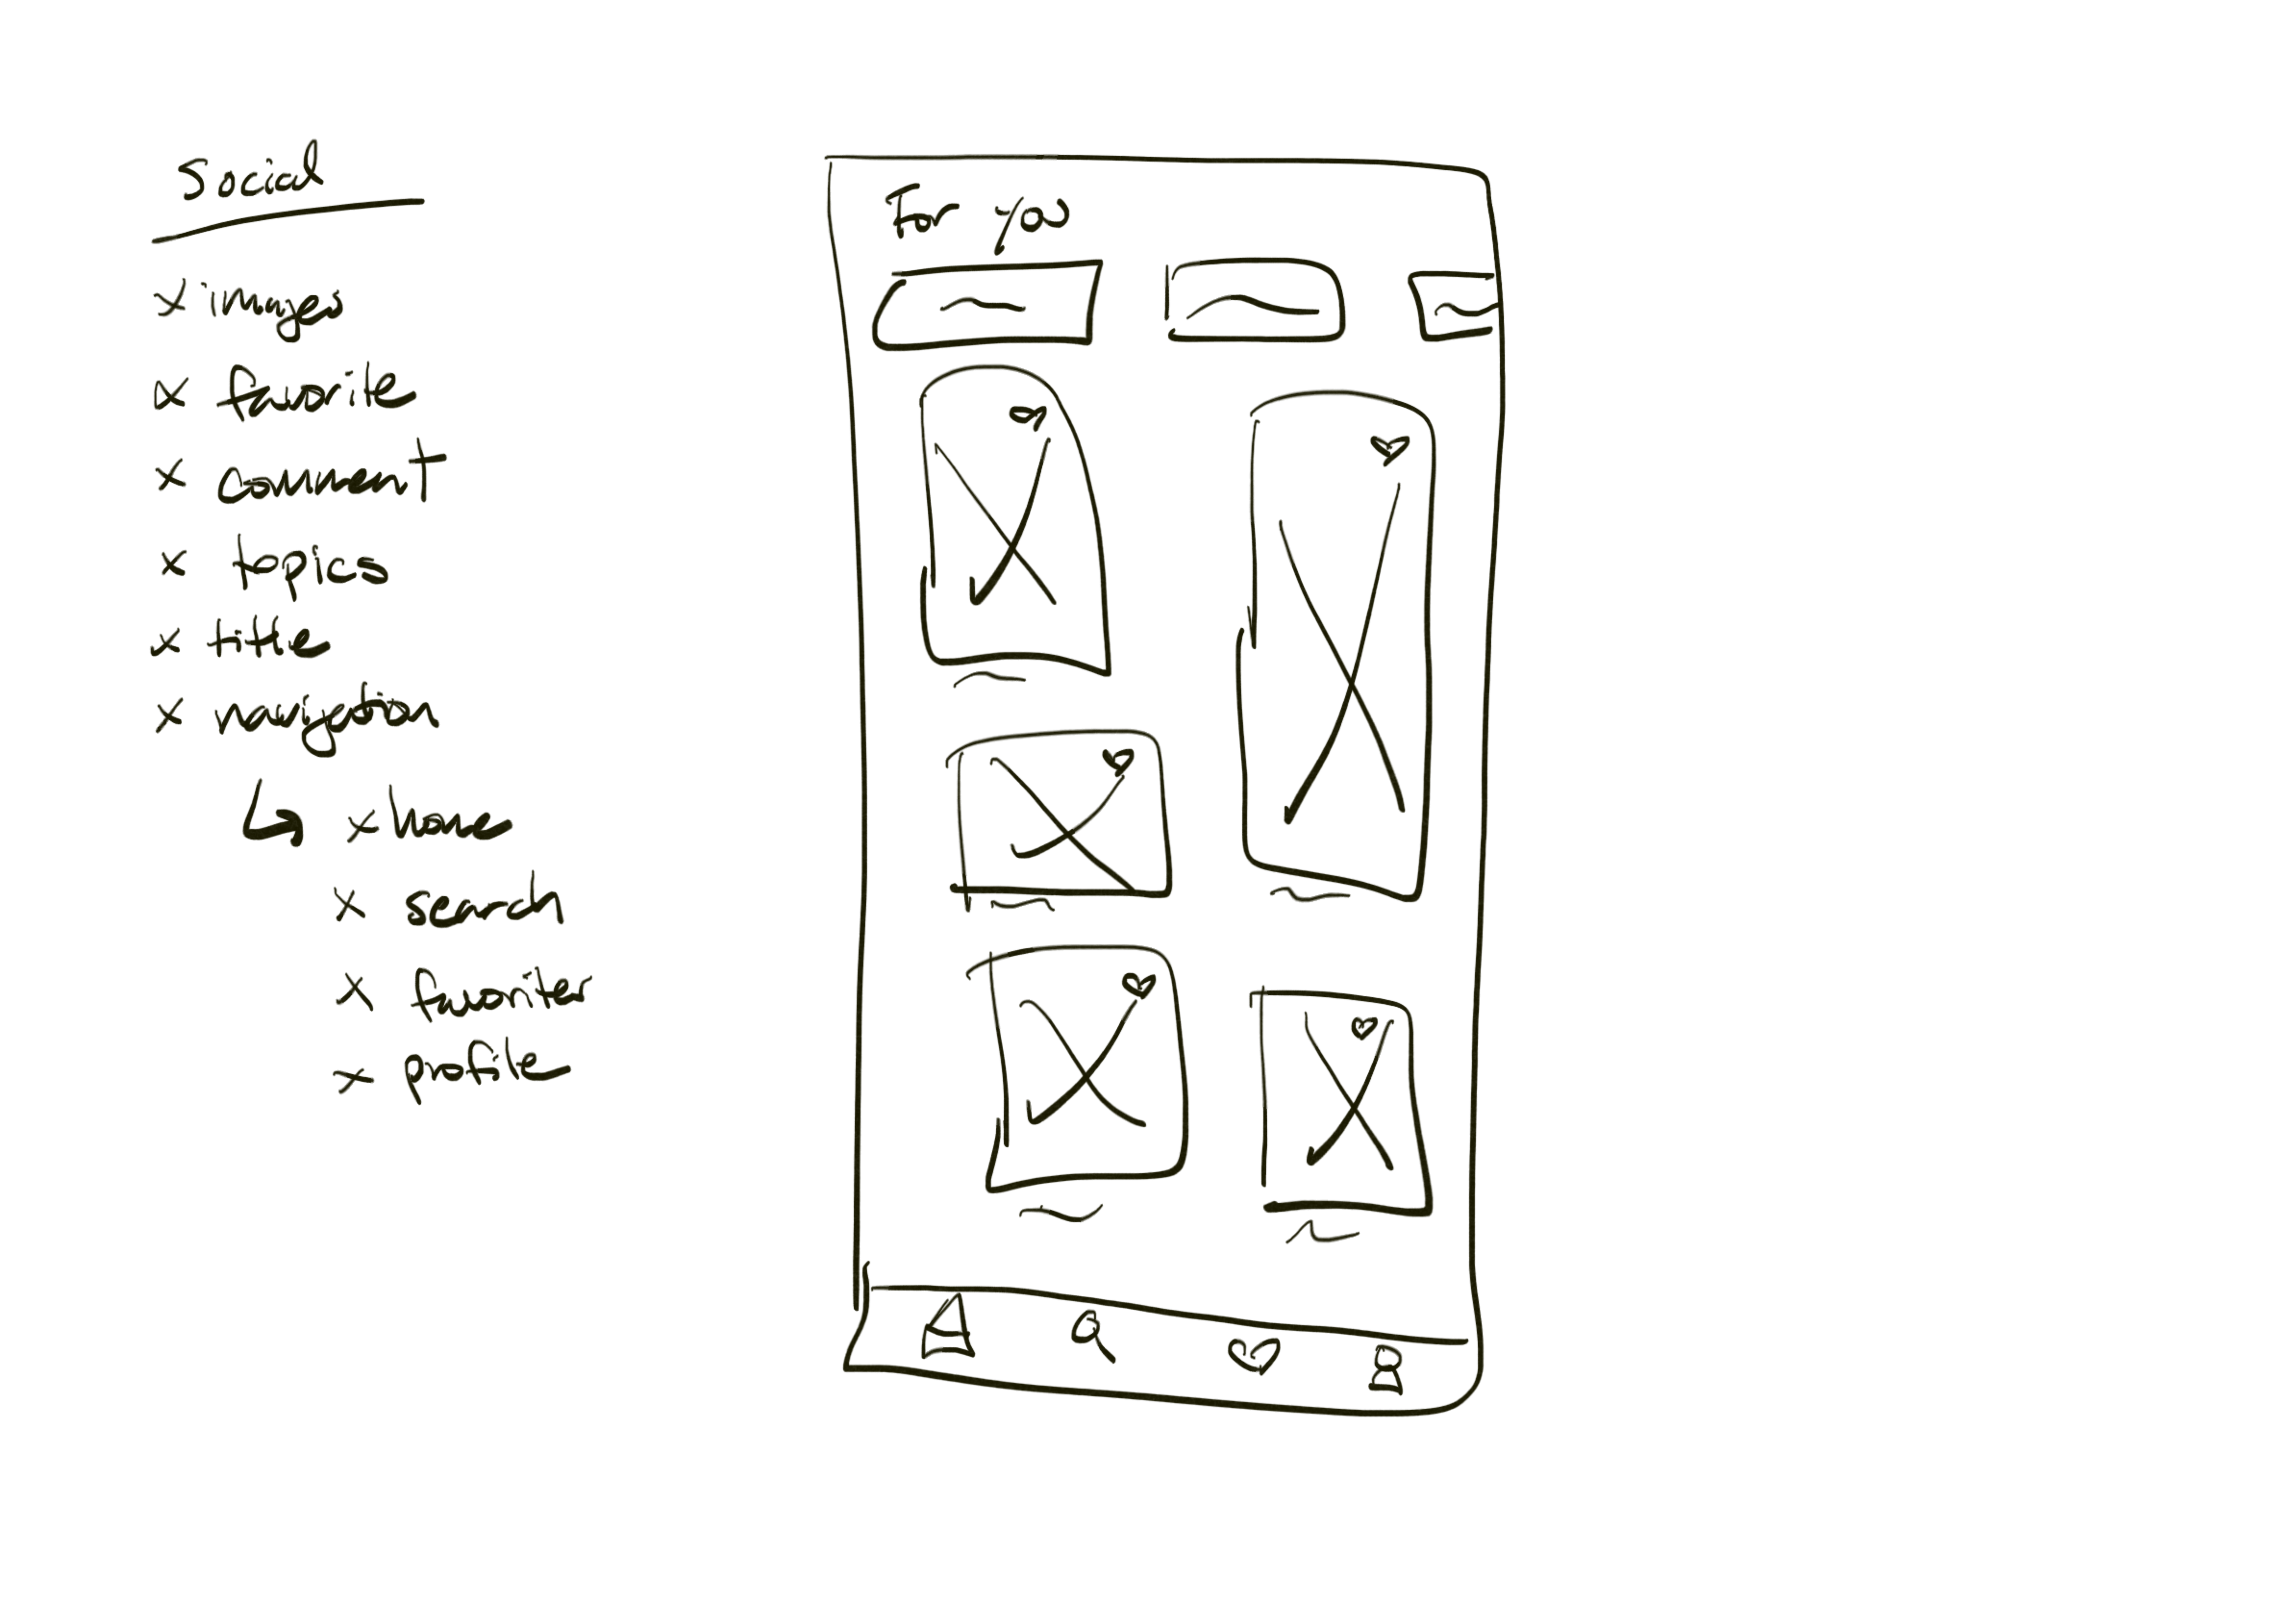 Social
x images
x favorite
x comment
x topics
x title
x navigation
↳ x home
x search
x favorites
x profile
For you